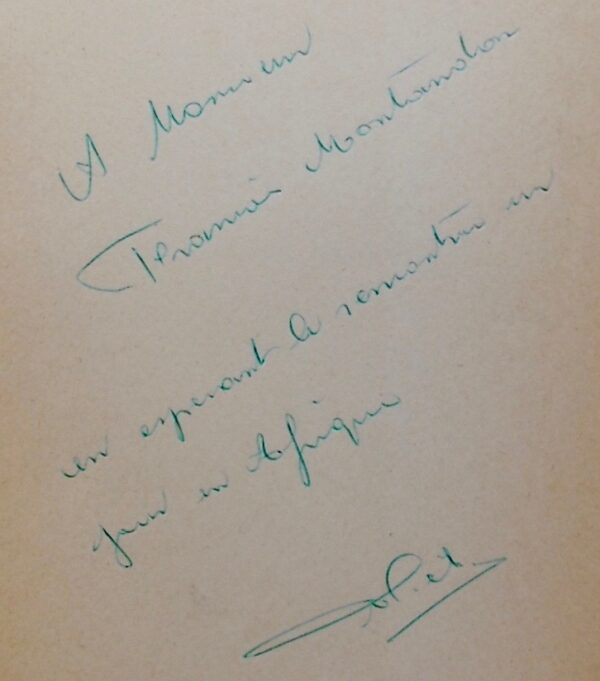 A Monsieur
François Montandon
en esperant le rencontrer un
jour en Afrique